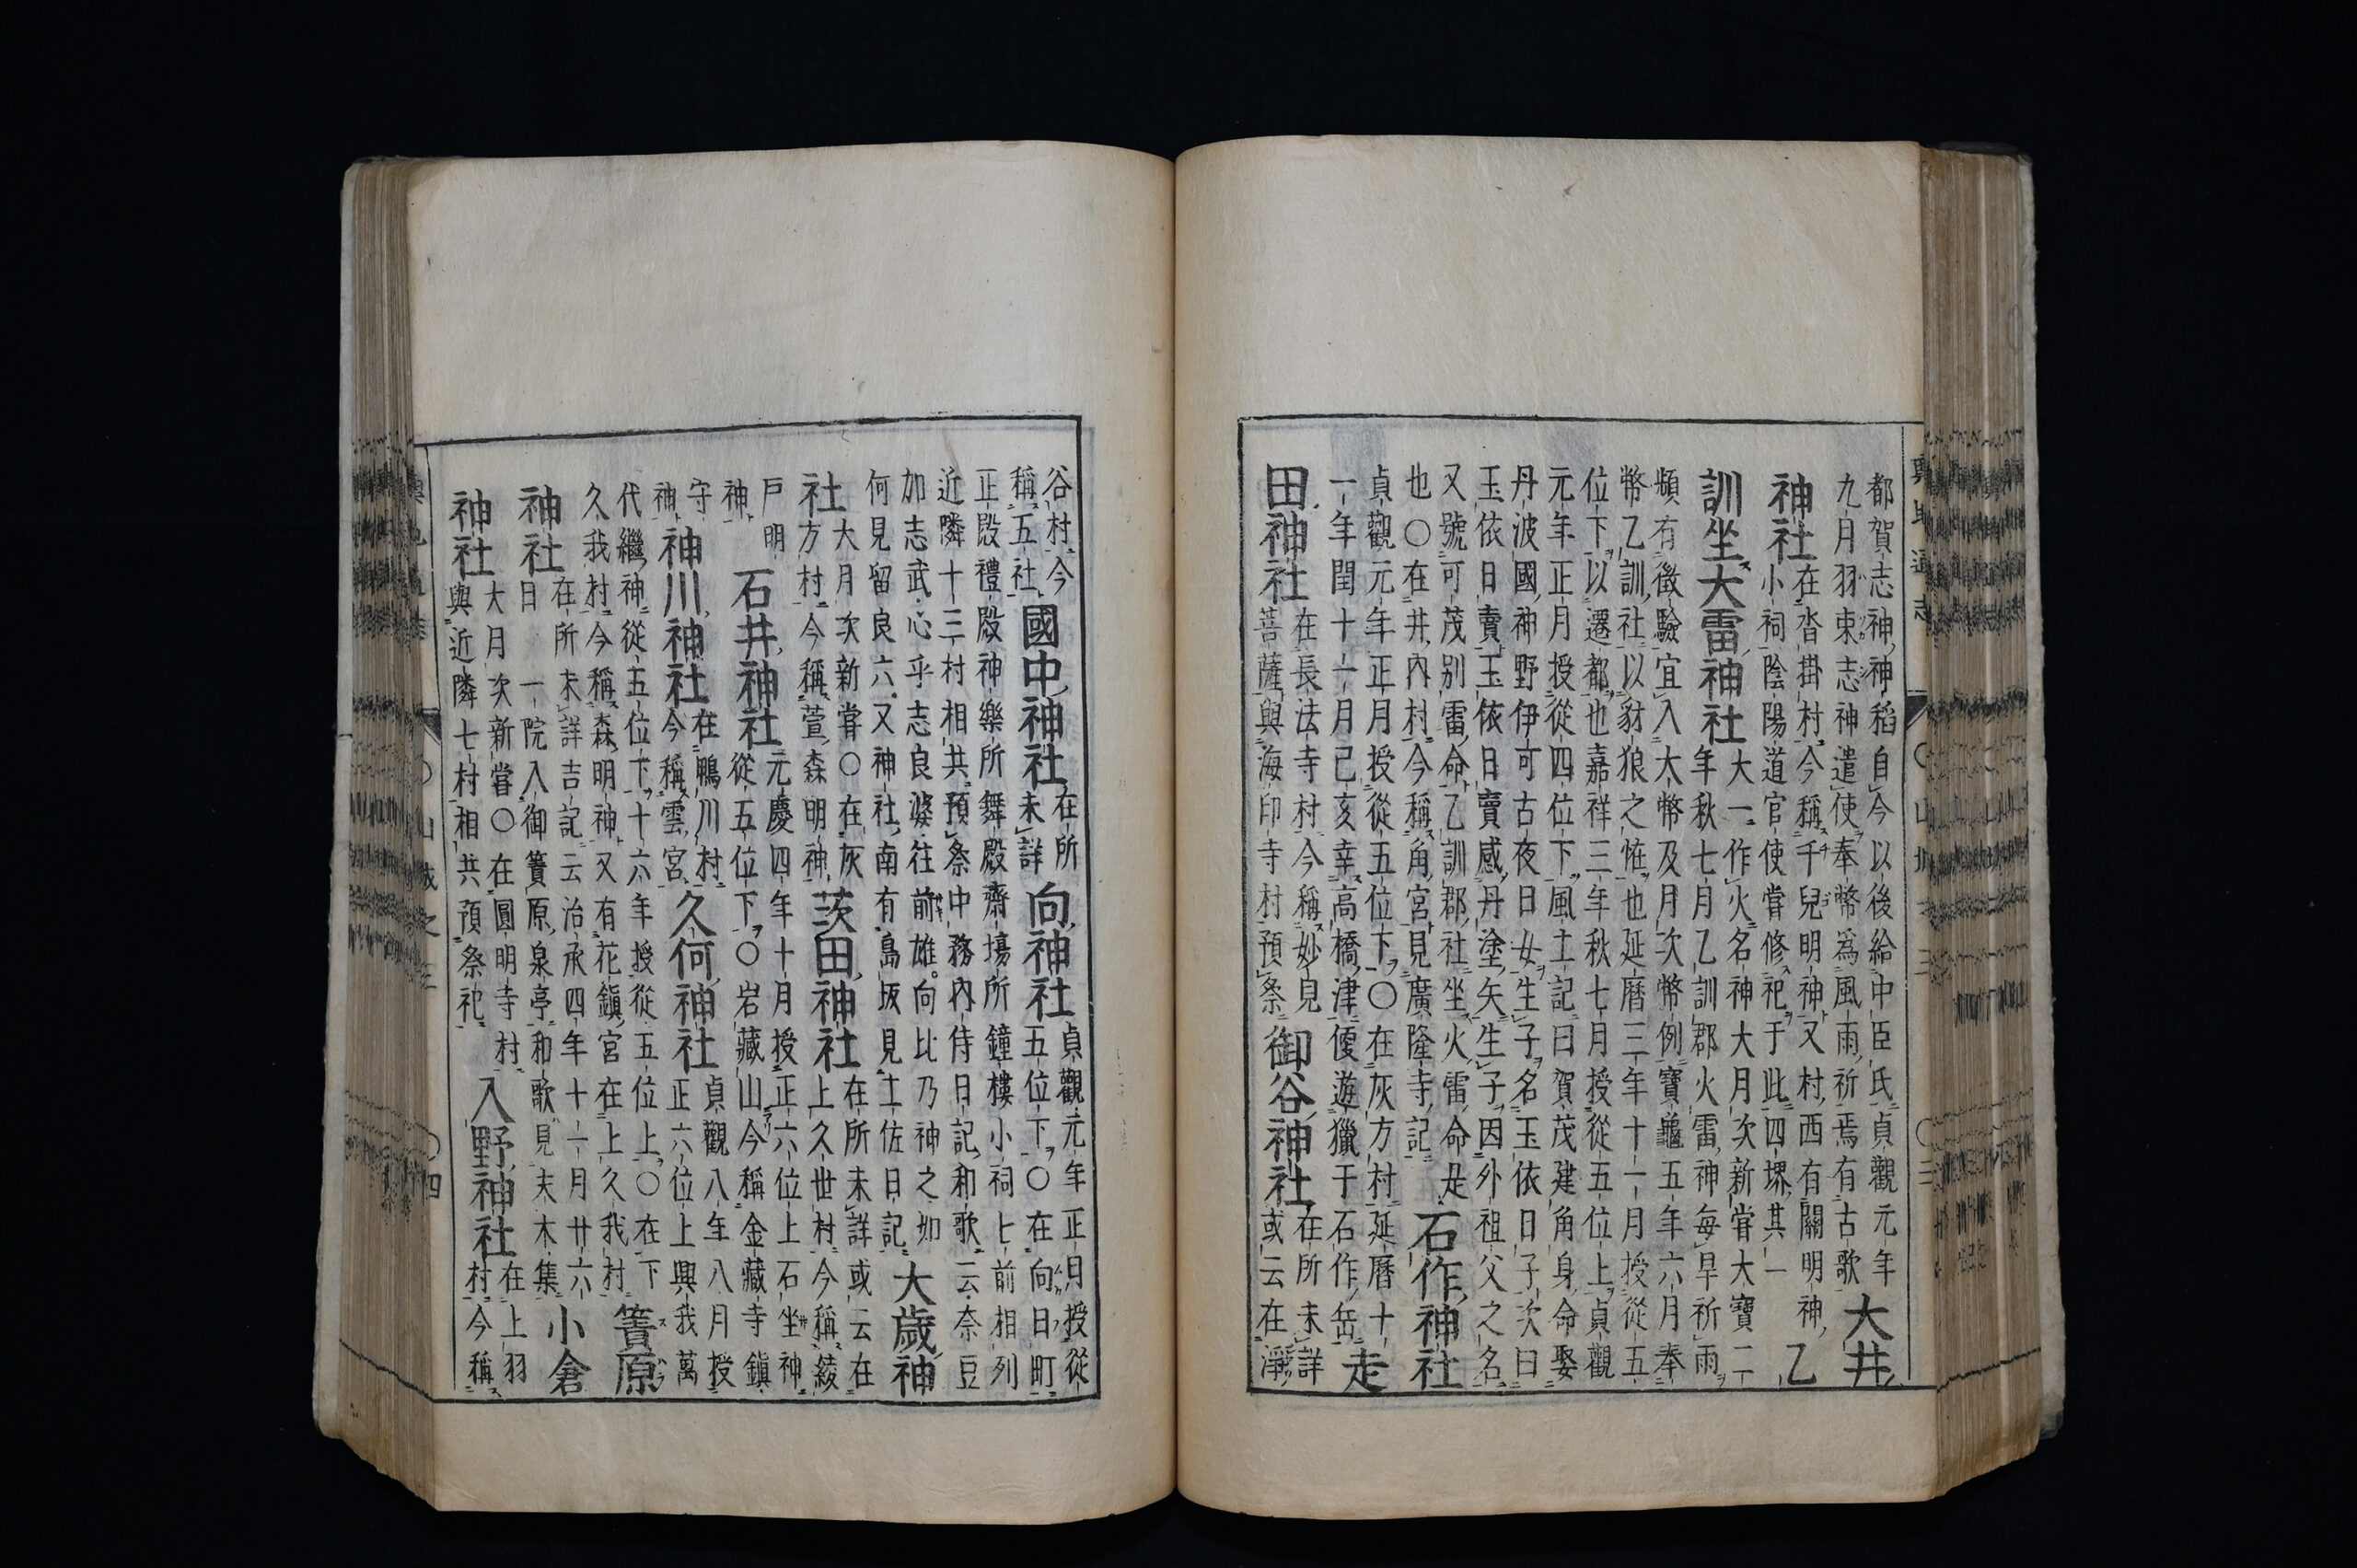 都賀志神神稻自今以後給中臣氏貞觀元年
九月羽束志神遣使奉幣爲風雨祈焉有古歌
大井
神社
在沓掛村今稱千兒明神又村西有關明神
小祠陰陽道官使嘗修祀于此四堺其一
乙
訓坐大雷神社
大一作火名神大月次新嘗大寶二
年秋七月乙訓郡火雷神每旱祈雨
頻有徵驗宜入大幣及月次幣例寶龜五年六月奉
幣乙訓社以豺狼之恠也延曆三年十一月授從五
位下以遷都也嘉祥三年秋七月授從五位上貞觀
元年正月授從四位下風土記曰賀茂建角身命娶
丹波國神野伊可古夜日女生子名玉依日子次曰
玉依日賣玉依日賣感丹塗矢生子因外祖父之名
又號可茂別雷命乙訓郡社坐火雷命是
也○在井內村今稱角宮見廣隆寺記
石作神社
貞觀元年正月授從五位下○在灰方村延曆十
一年閏十一月己亥幸高橋津便遊獵于石作岳
走
田神社
在長法寺村今稱妙見
菩薩與海印寺村預祭
御谷神社
在所未詳
或云在淨
谷村今
稱五社
國中神社
在所
未詳
向神社
貞觀元年正月授從
五位下○在向日町
正殿禮殿神樂所舞殿齋場所鐘樓小祠七前相列
近隣十三村相共預祭中務內侍日記和歌云奈豆
加志武心乎志良婆往前雄向比乃神之如
何見留良六又神社南有島坂見土佐日記
大歲神
社
大月次新嘗○在灰
方村今稱萱森明神
茨田神社
在所未詳或云在
上久世村今稱綾
戶明
神
石井神社
元慶四年十月授正六位上石坐神
從五位下○岩藏山今稱金藏寺鎮
守
神
神川神社
在鴨川村
今稱雲宮
久何神社
貞觀八年八月授
正六位上興我萬
代繼神從五位下十六年授從五位上○在下
久我村今稱森明神又有花鎮宮在上久我村
簀原
神社
在所未詳吉記云治承四年十一月廿六
日一院入御簀原泉亭和歌見夫木集
小倉
神社
大月次新嘗○在圓明寺村
與近隣七村相共預祭祀
入野神社
在上羽
村今稱